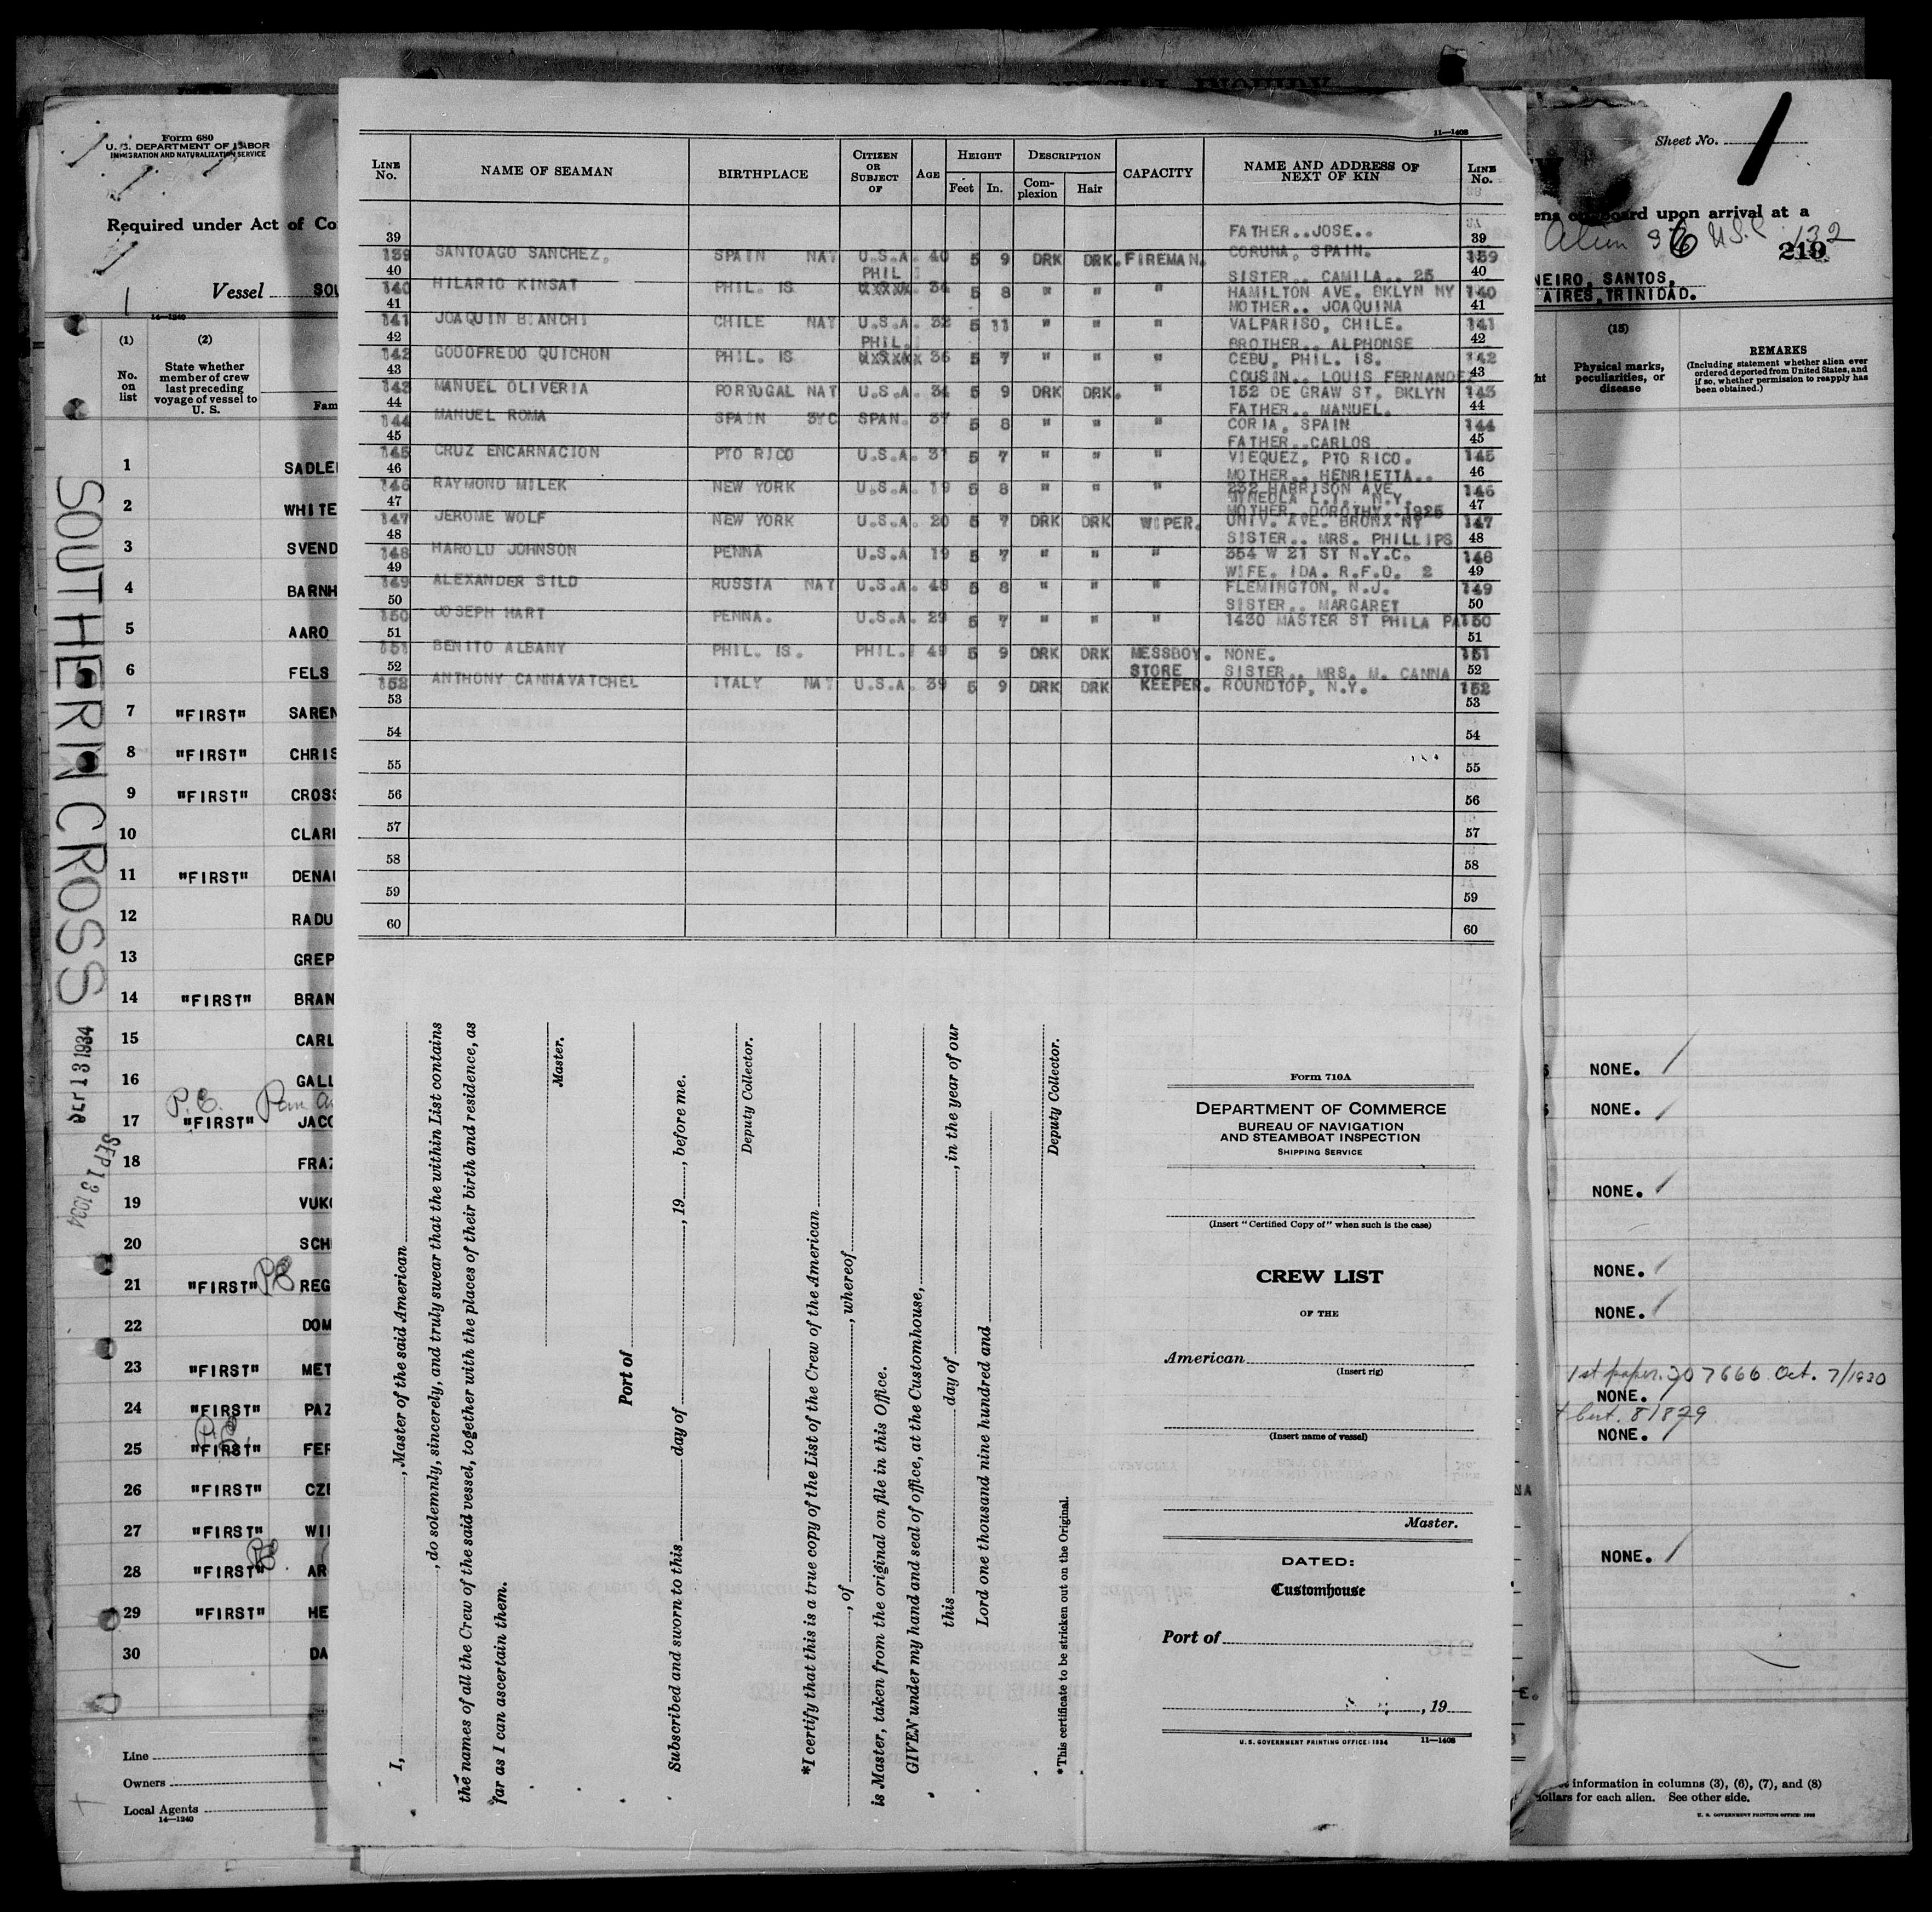 Form 680
U. S. DEPARTMENT OF LABOR
IMMIGRATION AND NATURALIZATION SERVICE
Required under Act of Co
Vessel SOU
14—1240
(1) (2)
No. on list
State whether member of crew last preceding voyage of vessel to U. S.
Fam
1 SADLE
2 WHITE
3 SVEND
4 BARNH
5 AARO
6 FELS
7 "FIRST" SAREN
8 "FIRST" CHRIS
9 "FIRST" CROSS
10 CLAR
11 "FIRST" DENA
12 RADU
13 GREP
14 "FIRST" BRAN
15 CARL
16 GALL
P.E.
17 "FIRST" JACO
18 FRAZ
19 VUK
20 SCH
21 "FIRST" PE REG
22 DOM
23 "FIRST" MET
24 "FIRST" PAZ
P.E.
25 "FIRST" FER
26 "FIRST" CZE
27 "FIRST" WI
PE
28 "FIRST" AR
29 "FIRST" HE
30 DA
Line
Owners
Local Agents
14—1240
SOUTHERN CROSS
SEP 13 1934
SEP 13 1934
11—1408
LINE No.
NAME OF SEAMAN
BIRTHPLACE
CITIZEN OR SUBJECT OF
AGE
HEIGHT
Feet In.
DESCRIPTION
Complexion Hair
CAPACITY
NAME AND ADDRESS OF NEXT OF KIN
LINE No.
39 FATHER..JOSE.. 39
139 SANTOAGO SANCHEZ. SPAIN NAT U.S.A. 40 5 9 DRK DRK. FIREMAN. CORUNA, SPAIN. 139
40 PHIL SISTER.. CAMILA.. 25 40
140 HILARIO KINSAT PHIL. IS XXXXX. 34 5 8 " " " HAMILTON AVE. BKLYN NY 140
41 MOTHER.. JOAQUINA 41
141 JOAQUIN BIANCHI CHILE NAT U.S.A. 32 5 11 " " " VALPARISO, CHILE. 141
42 PHIL. BROTHER.. ALPHONSE 42
142 GODOFREDO QUICHON PHIL. IS XXXXXX 36 5 7 " " " CEBU, PHIL. IS. 142
43 COUSIN.. LOUIS FERNANDEZ 43
143 MANUEL OLIVERIA PORTUGAL NAT U.S.A. 34 5 9 DRK DRK. " 152 DE GRAW ST. BKLYN 143
44 FATHER.. MANUEL. 44
144 MANUEL ROMA SPAIN 3YC SPAN. 37 5 8 " " " CORIA, SPAIN 144
45 FATHER..CARLOS 45
145 CRUZ ENCARNACION PTO RICO U.S.A. 31 5 7 " " " VIEQUEZ, PTO RICO. 145
46 MOTHER.. HENRIETTA.. 46
146 RAYMOND MILEK NEW YORK U.S.A. 19 5 8 " " " 232 HARRISON AVE. 146
47 MINEOLA L.I. N.Y. 47
MOTHER..DOROTHY..1925
147 JEROME WOLF NEW YORK U.S.A. 20 5 7 DRK DRK WIPER. UNIV. AVE. BRONX NY 147
48 SISTER.. MRS. PHILLIPS 48
148 HAROLD JOHNSON PENNA U.S.A 19 5 7 " " " 354 W 21 ST N.Y.C. 148
49 WIFE. IDA. R.F.D. 2 49
149 ALEXANDER SILD RUSSIA NAT U.S.A. 48 5 8 " " " FLEMINGTON, N.J. 149
50 SISTER.. MARGARET 50
150 JOSEPH HART PENNA. U.S.A. 29 5 7 " " " 1430 MASTER ST PHILA PA 150
51 51
151 BENITO ALBANY PHIL. IS. PHIL. 49 5 9 DRK DRK MESSBOY. NONE. 151
52 STORE SISTER.. MRS. M. CANNA 52
152 ANTHONY CANNAVATCHEL ITALY NAT U.S.A. 39 5 9 DRK DRK KEEPER. ROUNDTOP, N.Y. 152
53 53
54 54
55 55
56 56
57 57
58 58
59 59
60 60
I, , Master of the said American
, do solemnly, sincerely, and truly swear that the within List contains
the names of all the Crew of the said vessel, together with the places of their birth and residence, as
far as I can ascertain them.
Master.
Port of
Subscribed and sworn to this day of , 19 , before me.
Deputy Collector.
*I certify that this is a true copy of the List of the Crew of the American
, of , whereof
is Master, taken from the original on file in this Office.
GIVEN under my hand and seal of office, at the Customhouse,
this day of , in the year of our
Lord one thousand nine hundred and
Deputy Collector.
*This certificate to be stricken out on the Original.
Form 710A
DEPARTMENT OF COMMERCE
BUREAU OF NAVIGATION
AND STEAMBOAT INSPECTION
SHIPPING SERVICE
(Insert "Certified Copy of" when such is the case)
CREW LIST
OF THE
American
(Insert rig)
(Insert name of vessel)
Master.
DATED:
Customhouse
Port of
, 19
U. S. GOVERNMENT PRINTING OFFICE: 1934 11—1408
Sheet No. 1
ens on board upon arrival at a
Alien 96 U.S.C. 132
219
NEIRO, SANTOS,
AIRES, TRINIDAD.
(15)
ht
Physical marks, peculiarities, or disease
REMARKS
(Including statement whether alien ever ordered deported from United States, and if so, whether permission to reapply has been obtained.)
NONE.
NONE.
NONE.
NONE.
NONE.
1st paper. 307666 Oct. 7/1930
NONE.
Cert. 81879
NONE.
NA
NONE.
E.
information in columns (3), (6), (7), and (8)
dollars for each alien. See other side.
U. S. GOVERNMENT PRINTING OFFICE: